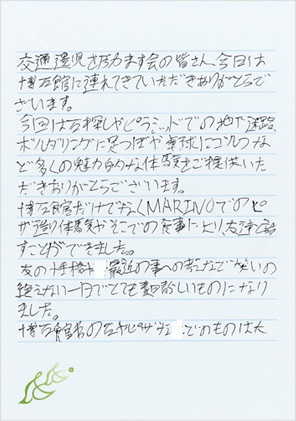 交通遺児を励ます会の皆さん、今日は
博石館に連れてきていただきありがとうで
ざいます。
今回は石探しやピラミッドでの地下迷路、
ボルダリングに足つぼや 球にゴルフな
ど多くの魅力的な体験をご提供いた
だきありがとうございます。
博石館だけでなくMARINOでのピ
ザ造り体験がそこでの食事により友達と話
すことができました。
友の 最近の事への 笑いの
絶えない一日でとても 楽しいものになり
ました。
博石館 の石 でのものは大